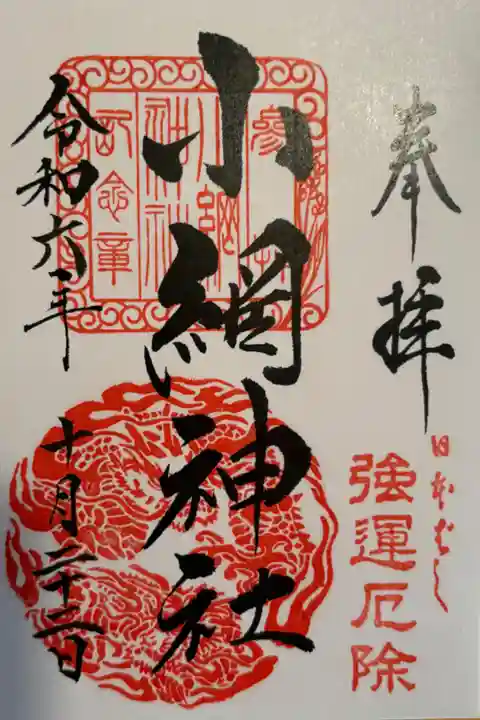 奉拝
日本ばし
強運厄除
小網神社
參拝
小網
神社
記念章
令和六年
十月二十二日